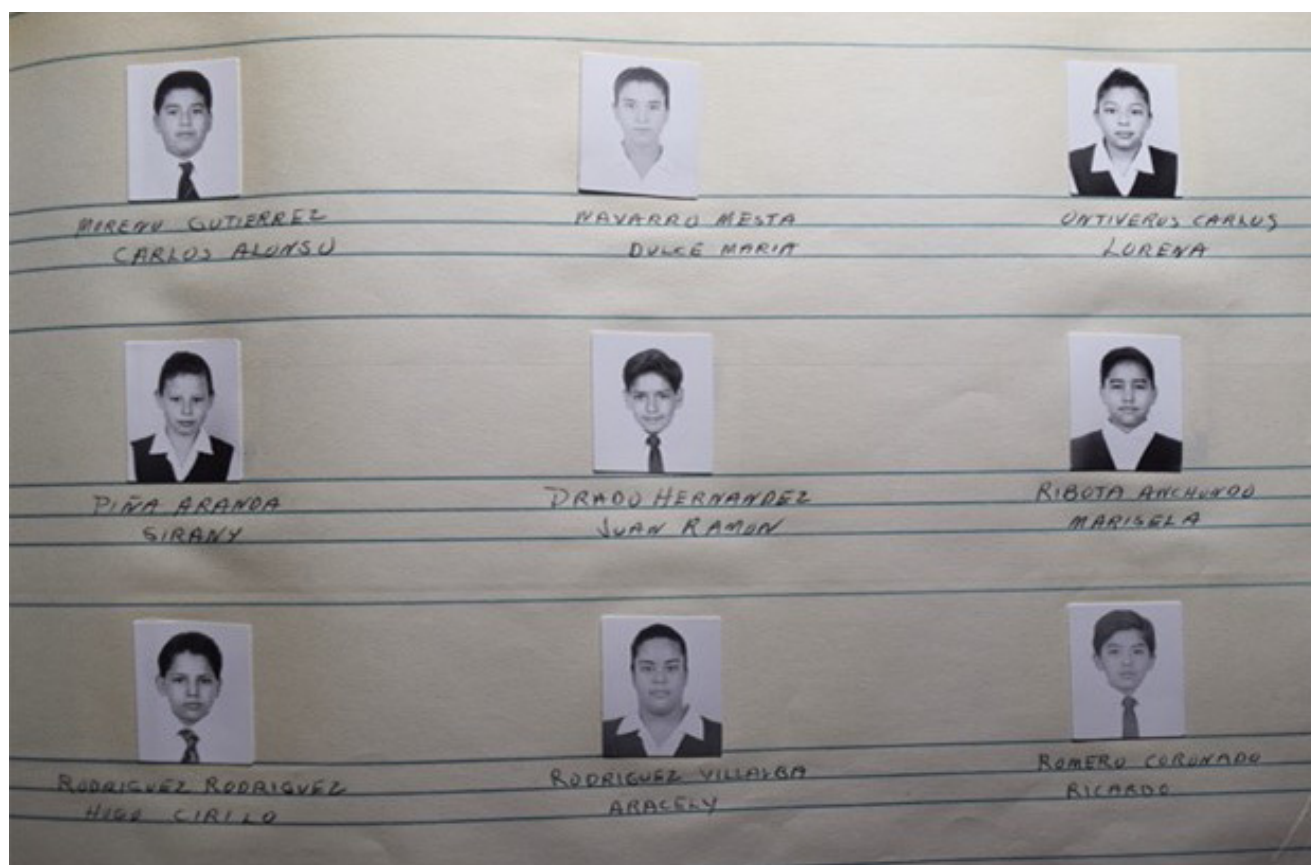 MORENO GUTIERREZ
CARLOS ALONSO
NAVARRO MESTA
DULCE MARIA
ONTIVEROS CARLOS
LORENA
PIÑA ARANDA
SIRANY
PRADO HERNANDEZ
JUAN RAMON
RIBOTA ANCHONDO
MARISELA
RODRIGUEZ RODRIGUEZ
HUGO CIRILO
RODRIGUEZ VILLALBA
ARACELY
ROMERO CORONADO
RICARDO